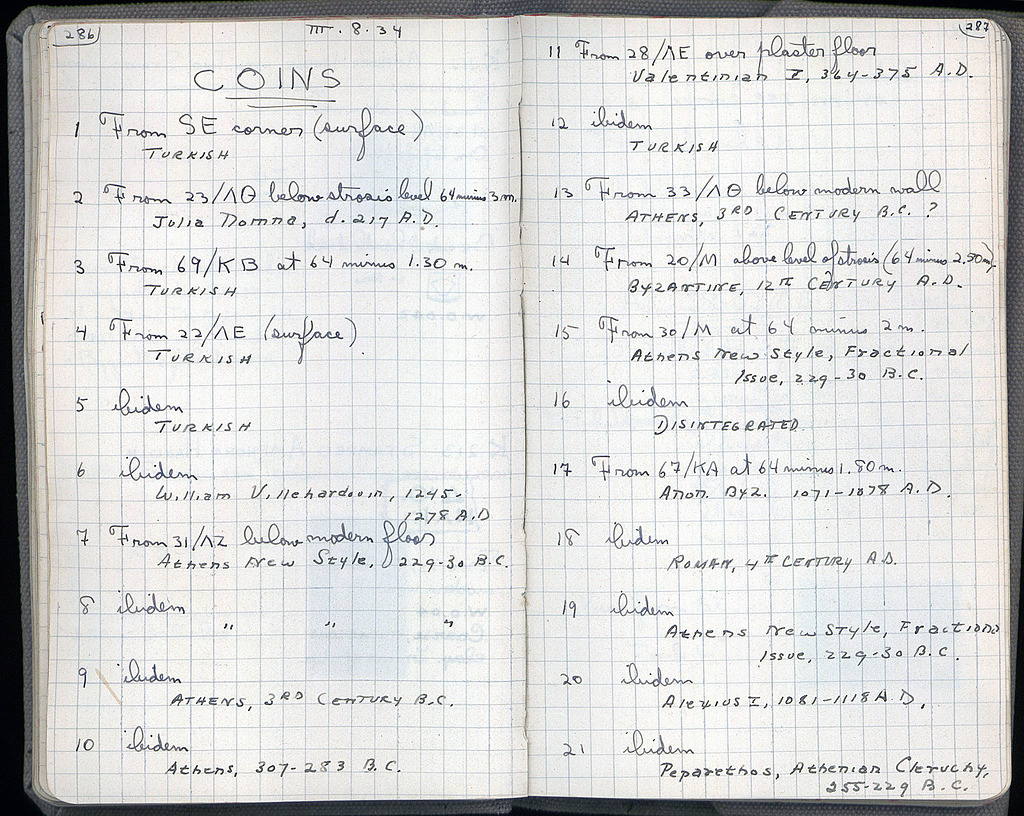 286
III. 8. 34
COINS
1 From SE corner (surface)
TURKISH
2 From 23/ΛΘ below strosis level 64 minus 3 m.
Julia Domna, d. 217 A.D.
3 From 69/KB at 64 minus 1.30 m.
TURKISH
4 From 22/ΛE (surface)
TURKISH
5 ibidem
TURKISH
6 ibidem
William Villehardouin, 1245-
1278 A.D
7 From 31/ΛZ below modern floor
Athens New Style, 229-30 B.C.
8 ibidem
" " "
9 ibidem
ATHENS, 3RD CENTURY B.C.
10 ibidem
Athens, 307-283 B.C.
287
11 From 28/ΛE over plaster floor
Valentinian I, 364-375 A.D.
12 ibidem
TURKISH
13 From 33/ΛΘ below modern wall
ATHENS, 3RD CENTURY B.C. ?
14 From 20/M above level of strosis (64 minus 2.50m)
BYZANTINE, 12TH CENTURY A.D.
15 From 30/M at 64 minus 2 m.
Athens New Style, Fractional
Issue, 229-30 B.C.
16 ibidem
DISINTEGRATED
17 From 67/KA at 64 minus 1.80 m.
Anon. Byz. 1071-1078 A.D.
18 ibidem
ROMAN, 4TH CENTURY A.D.
19 ibidem
Athens New Style, Fractional
Issue, 229-30 B.C.
20 ibidem
Alexius I, 1081-1118 A.D.
21 ibidem
Peparethos, Athenian Cleruchy,
255-229 B.C.